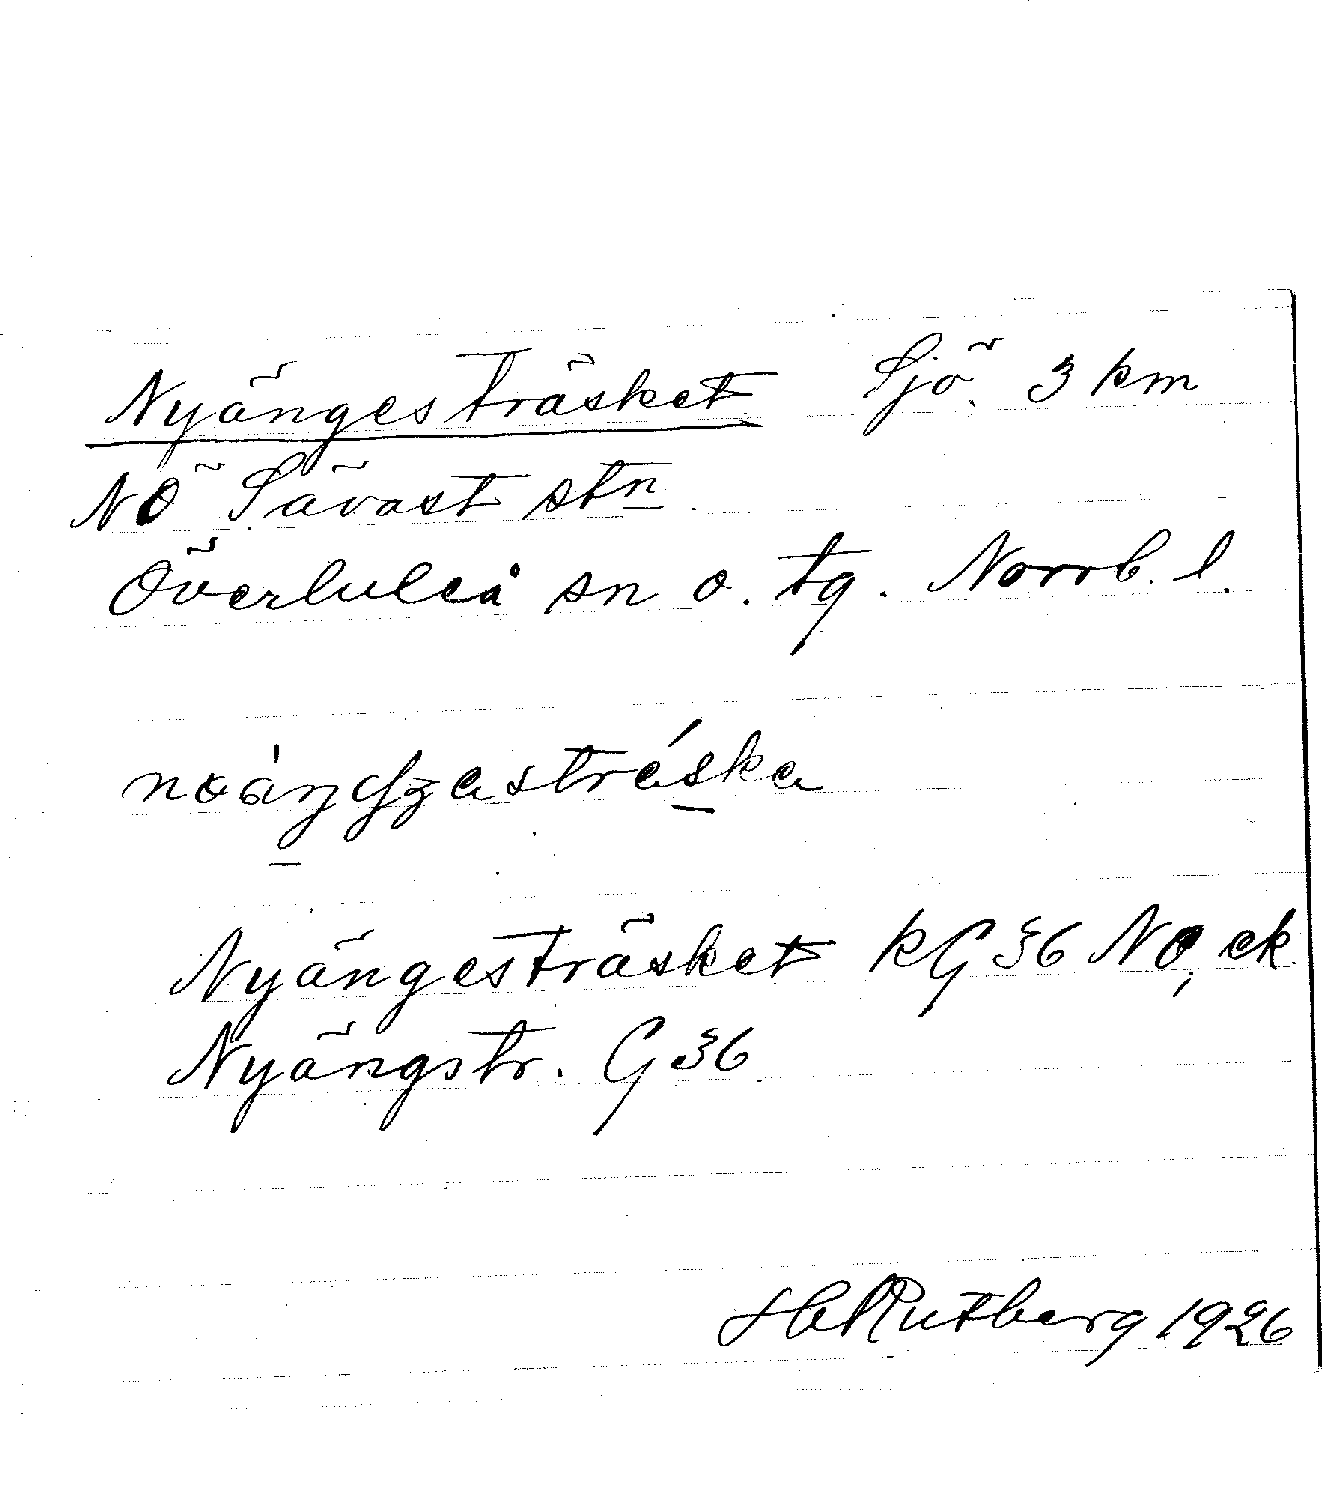 Nyängesträsket Sjö. 3 km
NÖ Sävast stn
Överluleå sn o. tg. Norrb. l.
Nyängesträsket kG 36 NO, ek
Nyängstr. G 36
H Rutberg 1926